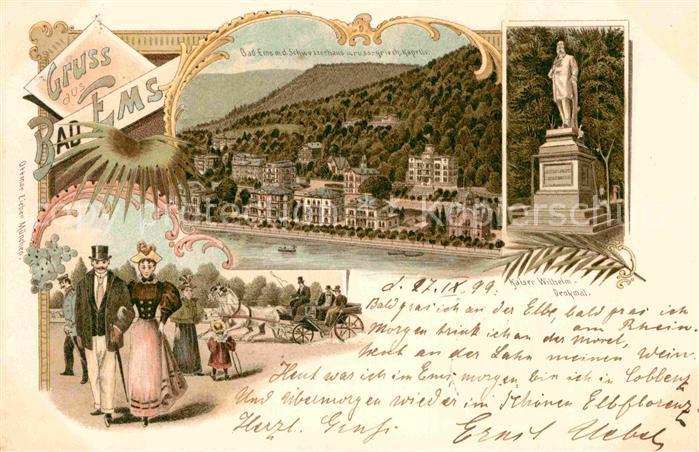 Gruss
aus
BAD EMS
Bad Ems m.d. Schwesterhaus u. russ.-griech. Kapelle.
Kaiser Wilhelm-
Denkmal.
Ottmar Zieher München.
d. 27. IX 99.
Bald gras ich an der Elbe, bald gras ich
am Rhein.
Morgen trink ich an der Mosel,
heut an der Lahn meinen Wein.
Heut war ich im Ems, morgen bin ich in Coblenz
Und übermorgen wieder im schönen Elbflorenz
Herzl. Gruß. Ernst